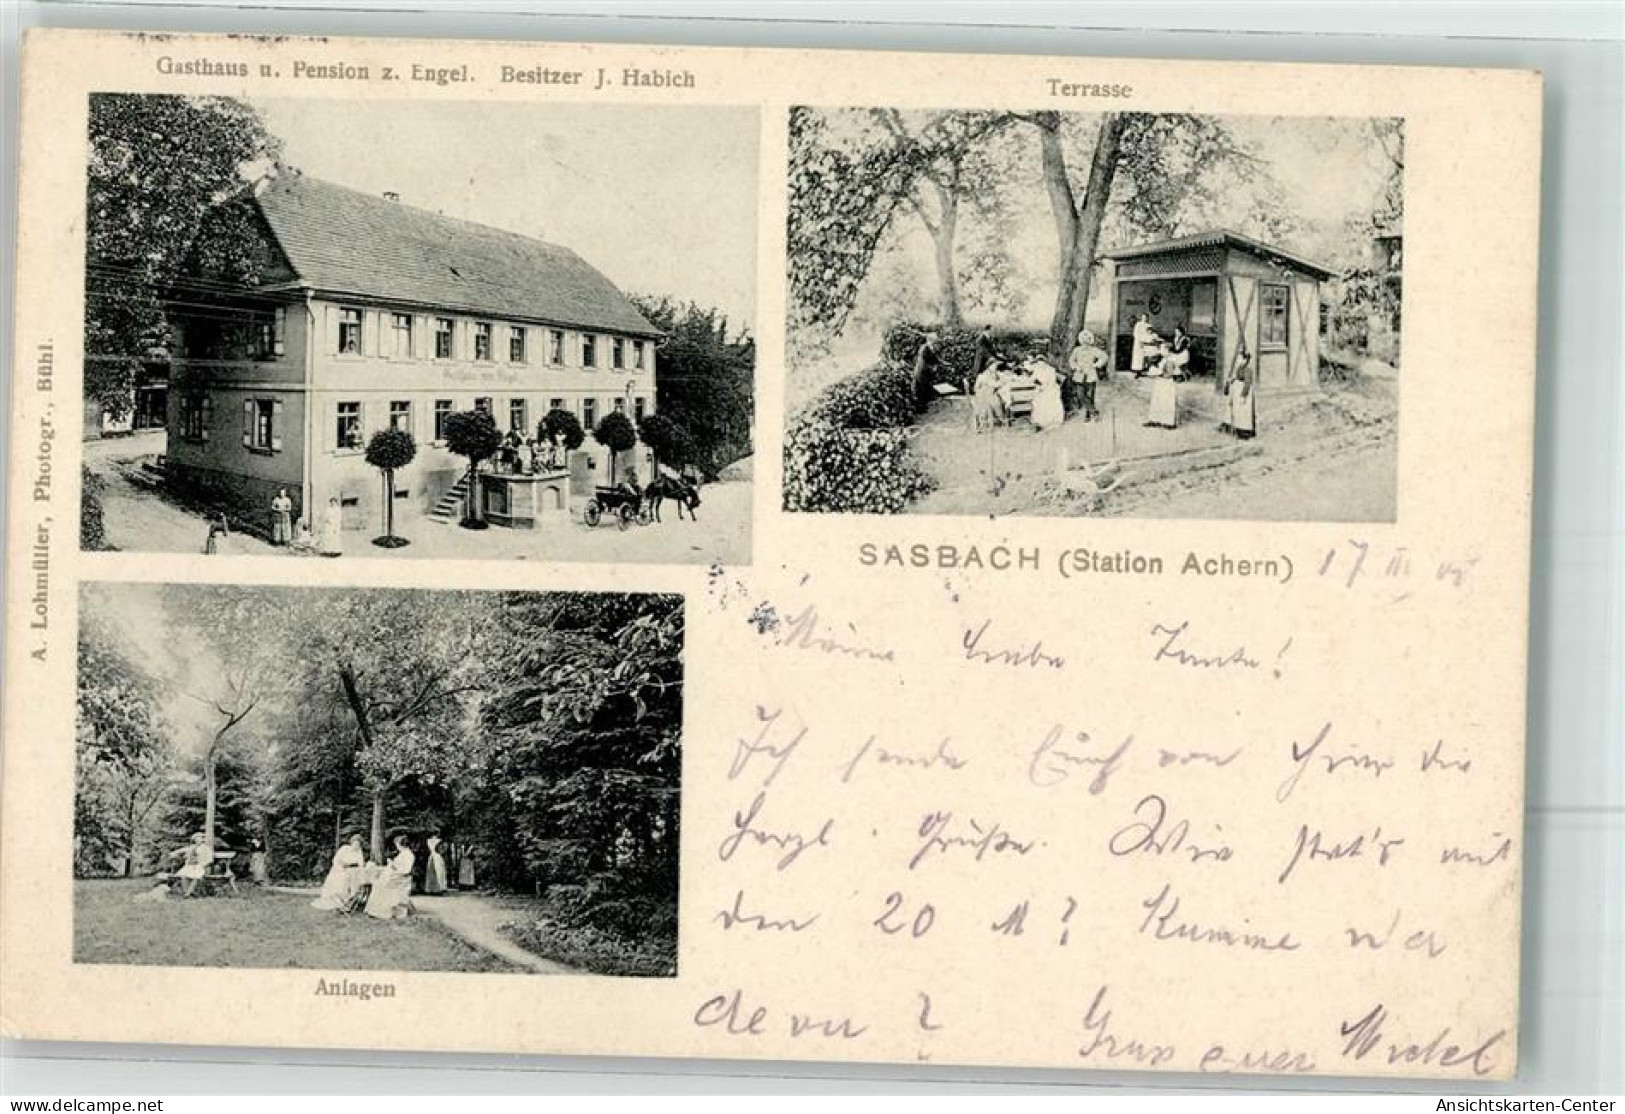 Gasthaus u. Pension z. Engel. Besitzer J. Habich
Terrasse
A. Lohmüller, Photogr., Bühl.
SASBACH (Station Achern) 17 III
Meine liebe Tante!
Ich sende Euch von hier die
herzl. Grüße. Wie steht's mit
den 20 M?
Gruss euer Michel
Anlagen
www.oldthing.de
Ansichtskarten-Center